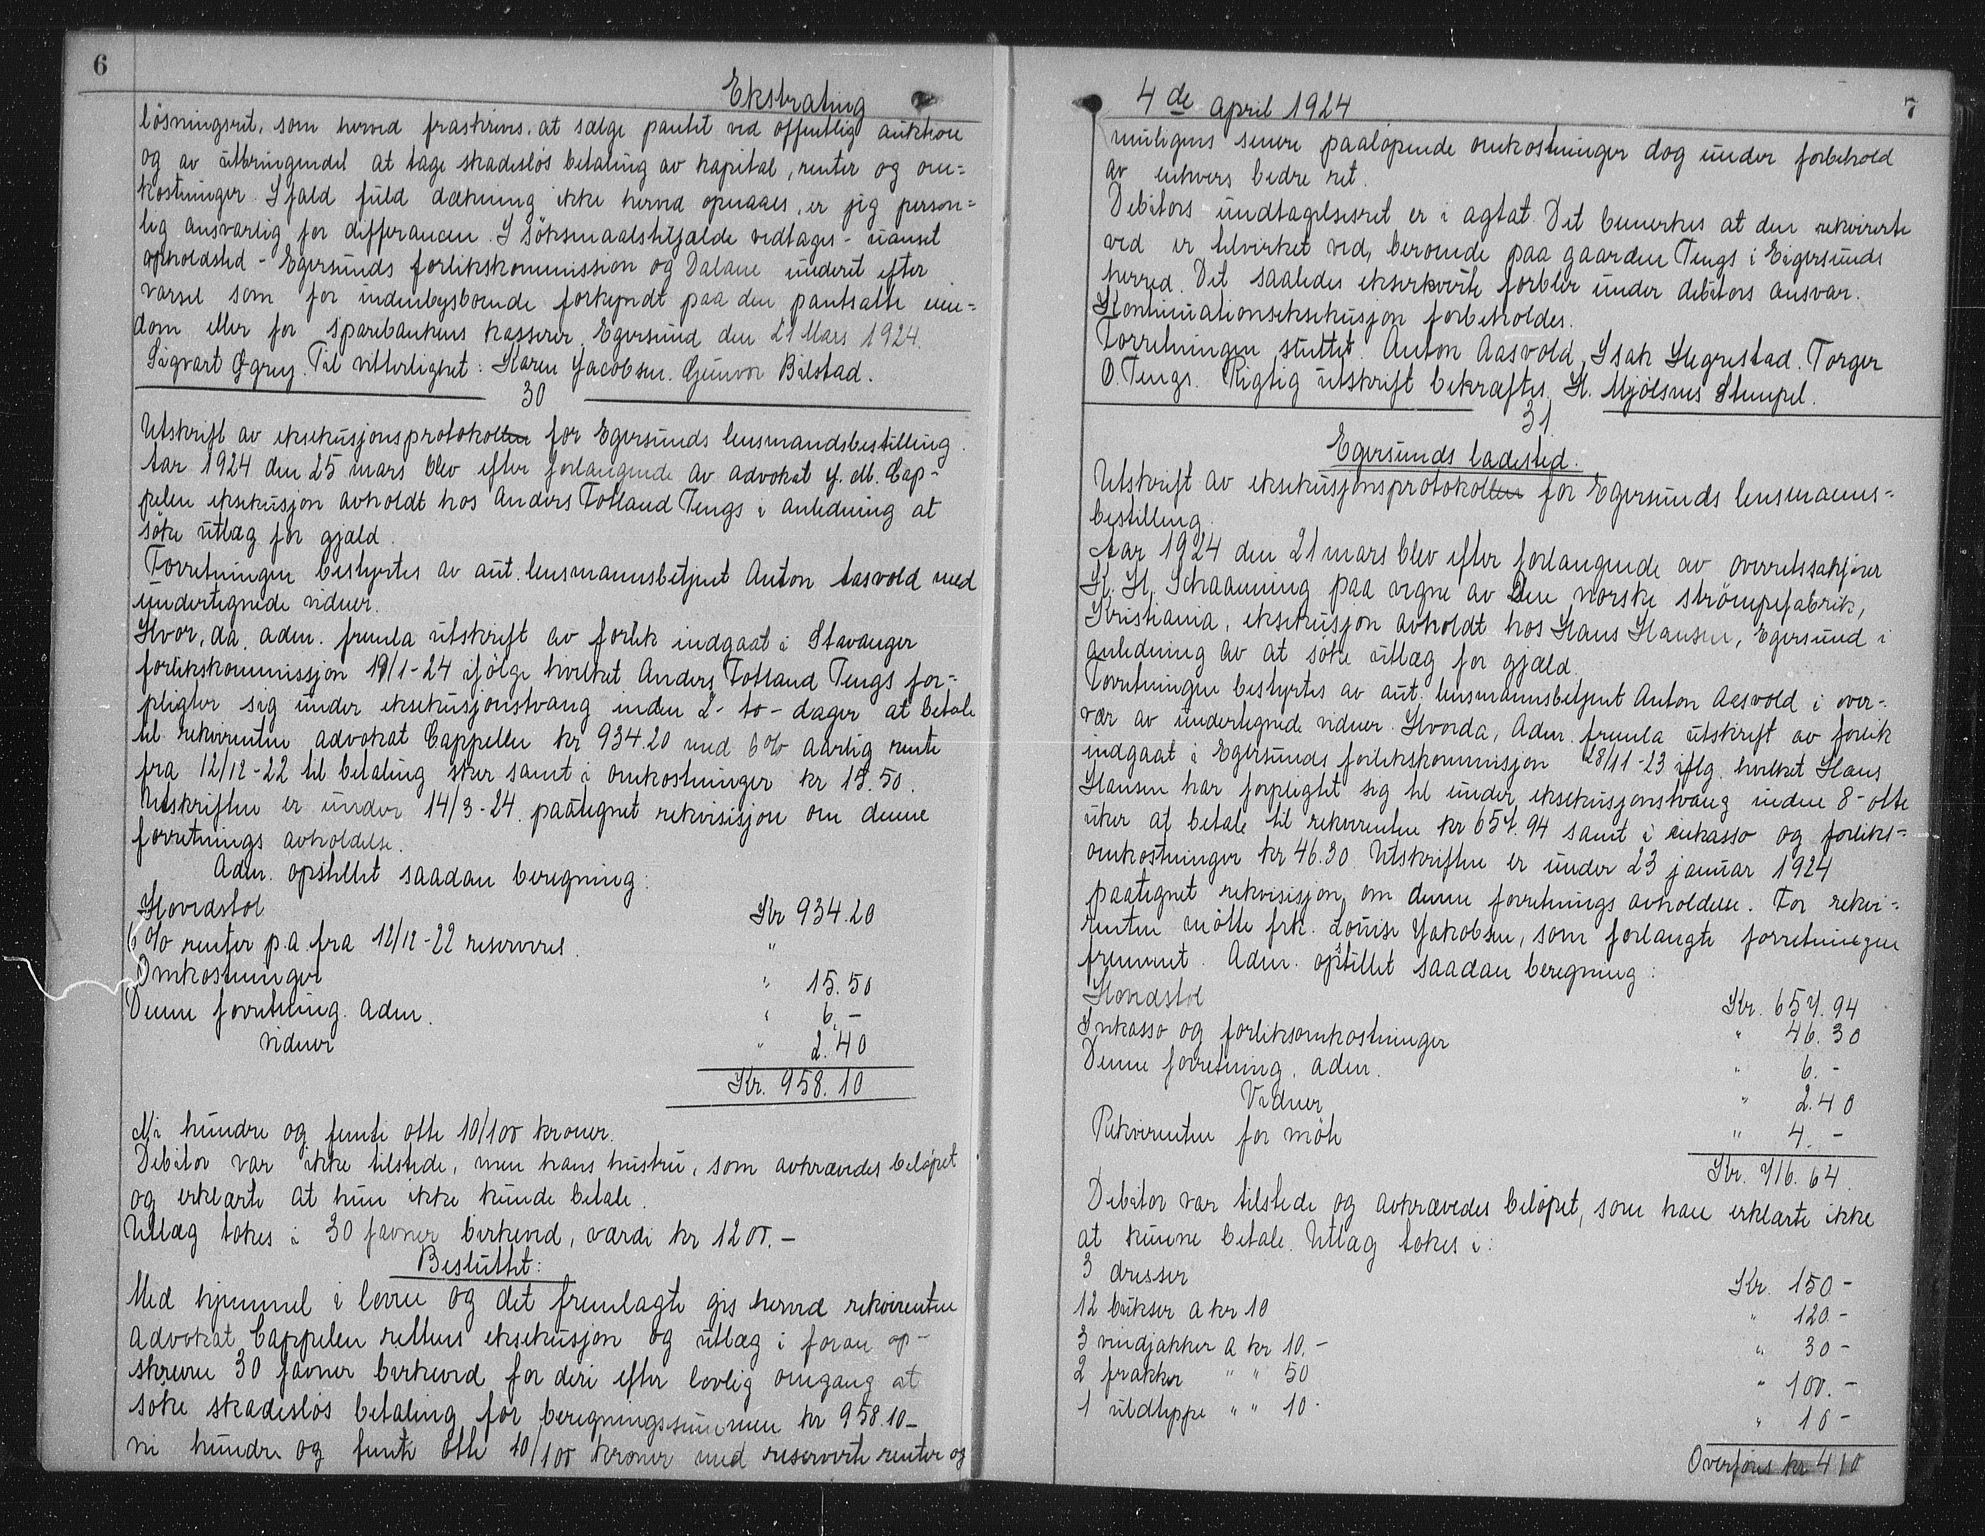 6
Ekstrating
løsningsret, som herved fraskrives, at sælge pantet ved offentlig auktion
og av utbringendet at tage skadesløs betaling av kapital, renter og om-
kostninger. I fald fuld dækning ikke herved opnaaes, er jeg person-
lig ansvarlig for differancen. I søksmaalstilfælde vedtages - uanset
opholdsted - Egersunds forlikskommission og Dalane underet efter
varsel som for indenbysboende forkyndt paa den pantsatte eien-
dom eller for sparebankens kasserer. Egersund den 21 Mars 1924.
Sigvart Øgrey. Til vitterlighet: Karen Jacobsen. Gunvor Bilstad.
30
Utskrift av eksekusjonsprotokollen for Egersunds lensmandsbestilling.
Aar 1924 den 25 mars blev efter forlangende av advokat J. M. Cap-
pelen eksekusjon avholdt hos Anders Totland Tengs i anledning at
søke utlæg for gjæld.
Forretningen bestyrtes av aut. lensmannsbetjent Anton Aasvold med
undertegnede vidner.
Hvor, da, adm. fremla utskrift av forlik indgaat i Stavanger
forlikskommissjon 19/1-24 ifølge hvilket Anders Totland Tengs for-
pligter sig under eksekusjonstvang inden 2- to - dager at betale
til rekvirenten advokat Cappelen kr 934.20 med 6% aarlig rente
fra 12/12-22 til betaling sker samt i omkostninger kr 15.50.
Utskriften er under 14/3-24 paategnet rekvisisjon om denne
forretnings avholdelse.
Adm. opstillet saadan beregning:
Hovedstol Kr 934.20
6% renter p.a. fra 12/12-22 reserveres. "
Omkostninger " 15.50
Denne forretning. adm. " 6.-
vidner " 2.40
Kr. 958.10
Ni hundre og femti otte 10/100 kroner.
Debitor var ikke tilstede, men hans hustru, som avkrævedes beløpet
og erklærte at hun ikke kunde betale.
Utlæg tokes i 30 favner birkeved, værdi kr 1200.-
Besluttet:
Med hjemmel i loven og det fremlagte gis herved rekvirenten
advokat Cappelen rettens eksekusjon og utlæg i foran op-
skrevne 30 favner birkeved for deri efter lovlig omgang at
søke skadesløs betaling for beregningssummen kr 958.10-
ni hundre og femti otte 10/100 kroner med reserverte renter og
7
4de april 1924
muligens senere paaløpende omkostninger dog under forbehold
av enhvers bedre ret.
Debitors undtagelsesret er i agtat. Det bemerkes at den rekvirerte
ved er tilvirket ved, beroende paa gaarden Tengs i Eigersunds
herred. Det saaledes eksekverte forblir under debitors ansvar.
Kontinuationseksekusjon forbeholdes.
Forretningen sluttet. Anton Aasvold, Isak Hegrestad. Torger
O. Tengs. Rigtig utskrift bekræftes H. Mjølsnes Stempel.
31
Egersunds ladested.
Utskrift av eksekusjonsprotokollen for Egersunds lensmanns-
bestilling.
Aar 1924 den 21 mars blev efter forlangende av overretssakfører
K. H. Schaanning paa vegne av Den norske strømpefabrik,
Kristiania, eksekusjon avholdt hos Hans Hansen, Egersund i
anledning av at søke utlæg for gjæld.
Forretningen bestyrtes av aut. lensmannsbetjent Anton Aasvold i over-
vær av undertegnede vidner. Hvorda, Adm. fremla utskrift av forlik
indgaat i Egersunds forlikskommisjon 28/11-23 iflg. hvilket Hans
Hansen har forpligtet sig til under eksekusjonstvang inden 8-otte
uker at betale til rekvirenten kr 657.94 samt i inkasso og forliks-
omkostninger kr 46.30. Utskriften er under 23 januar 1924
paategnet rekvisisjon om denne forretnings avholdelse. For rekvi-
renten møtte frk. Louise Jakobsen, som forlangte forretningen
fremmet. Adm. opstillet saadan beregning:
Hovedstol Kr. 657.94
Inkasso og forliksomkostninger " 46.30
Denne forretning. adm. " 6.-
Vidner " 2.40
Rekvirenten for møte " 4.-
Kr. 716.64.
Debitor var tilstede og avkrævedes beløpet, som han erklærte ikke
at kunne betale. Utlæg tokes i:
3 dresser Kr. 150-
12 bukser a kr 10 " 120.-
3 vindjakker a kr 10.- " 30-
2 frakker " " 50 " 100.-
1 uldteppe " " 10. " 10-
Overføres kr 410